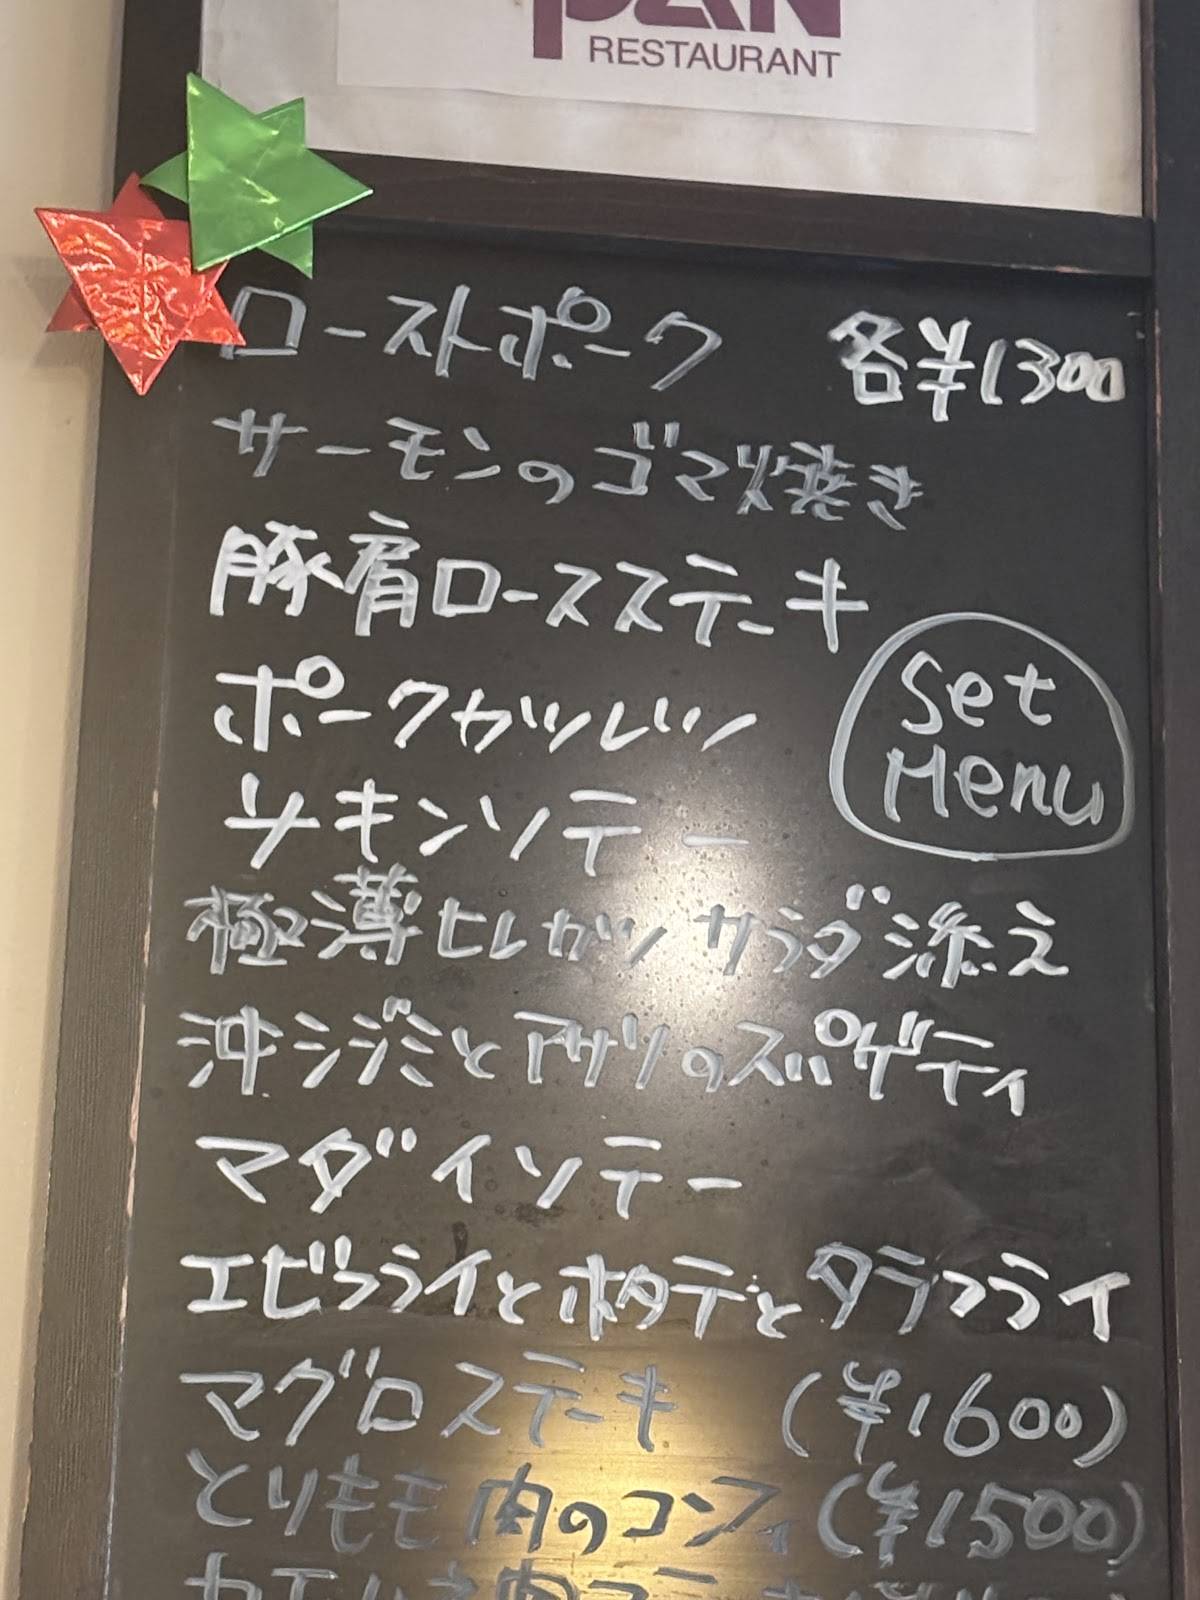 PAN
RESTAURANT
ローストポーク 各¥1300
サーモンのゴマ焼き
豚肩ロースステーキ
ポークカツレツ
チキンソテー
極薄ヒレカツ サラダ添え
沖シジミとアサリのスパゲティ
マダイソテー
エビフライとホタテとタラフライ
マグロステーキ (¥1600)
とりもも肉のコンフィ (¥1500)
Set
Menu